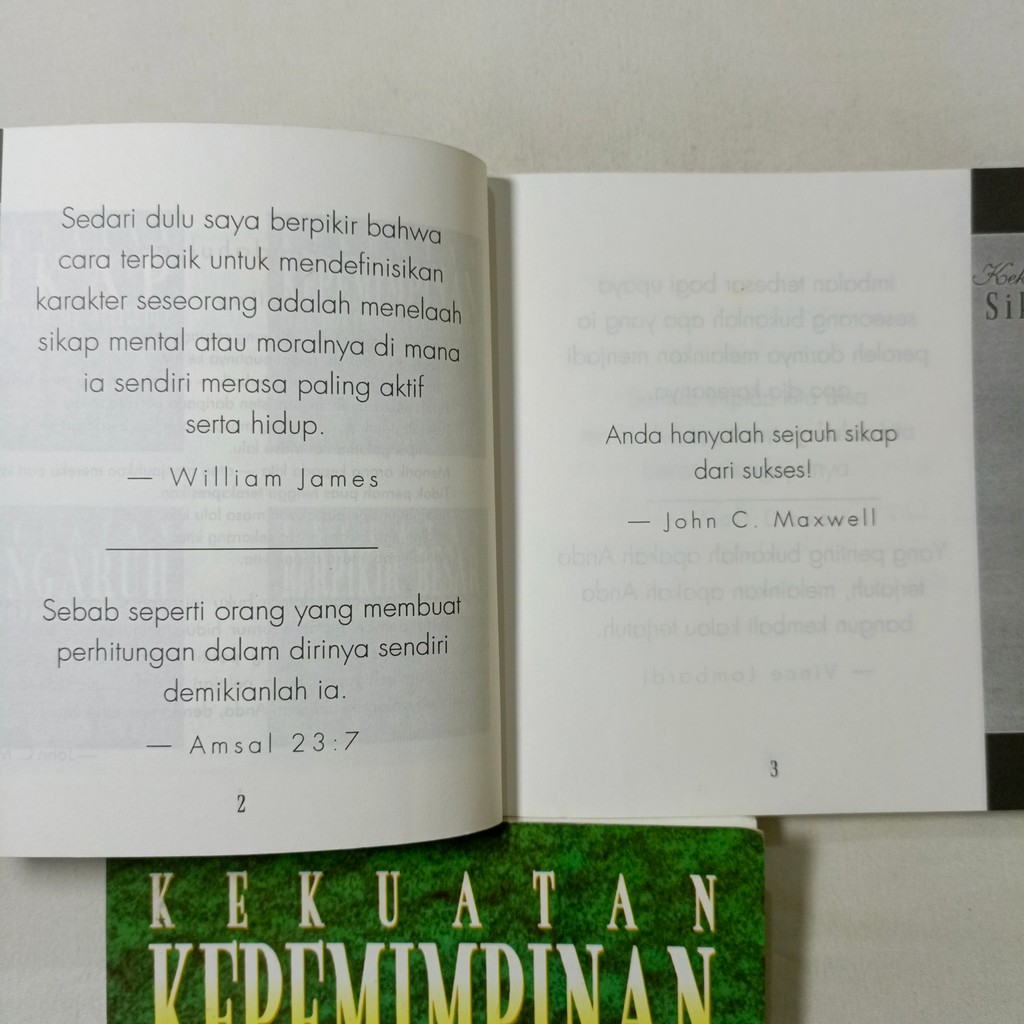 Sedari dulu saya berpikir bahwa
cara terbaik untuk mendefinisikan
karakter seseorang adalah menelaah
sikap mental atau moralnya di mana
ia sendiri merasa paling aktif
serta hidup.
— William James
Sebab seperti orang yang membuat
perhitungan dalam dirinya sendiri
demikianlah ia.
— Amsal 23:7
2
Anda hanyalah sejauh sikap
dari sukses!
— John C. Maxwell
3
KEKUATAN
KEPEMIMPINAN